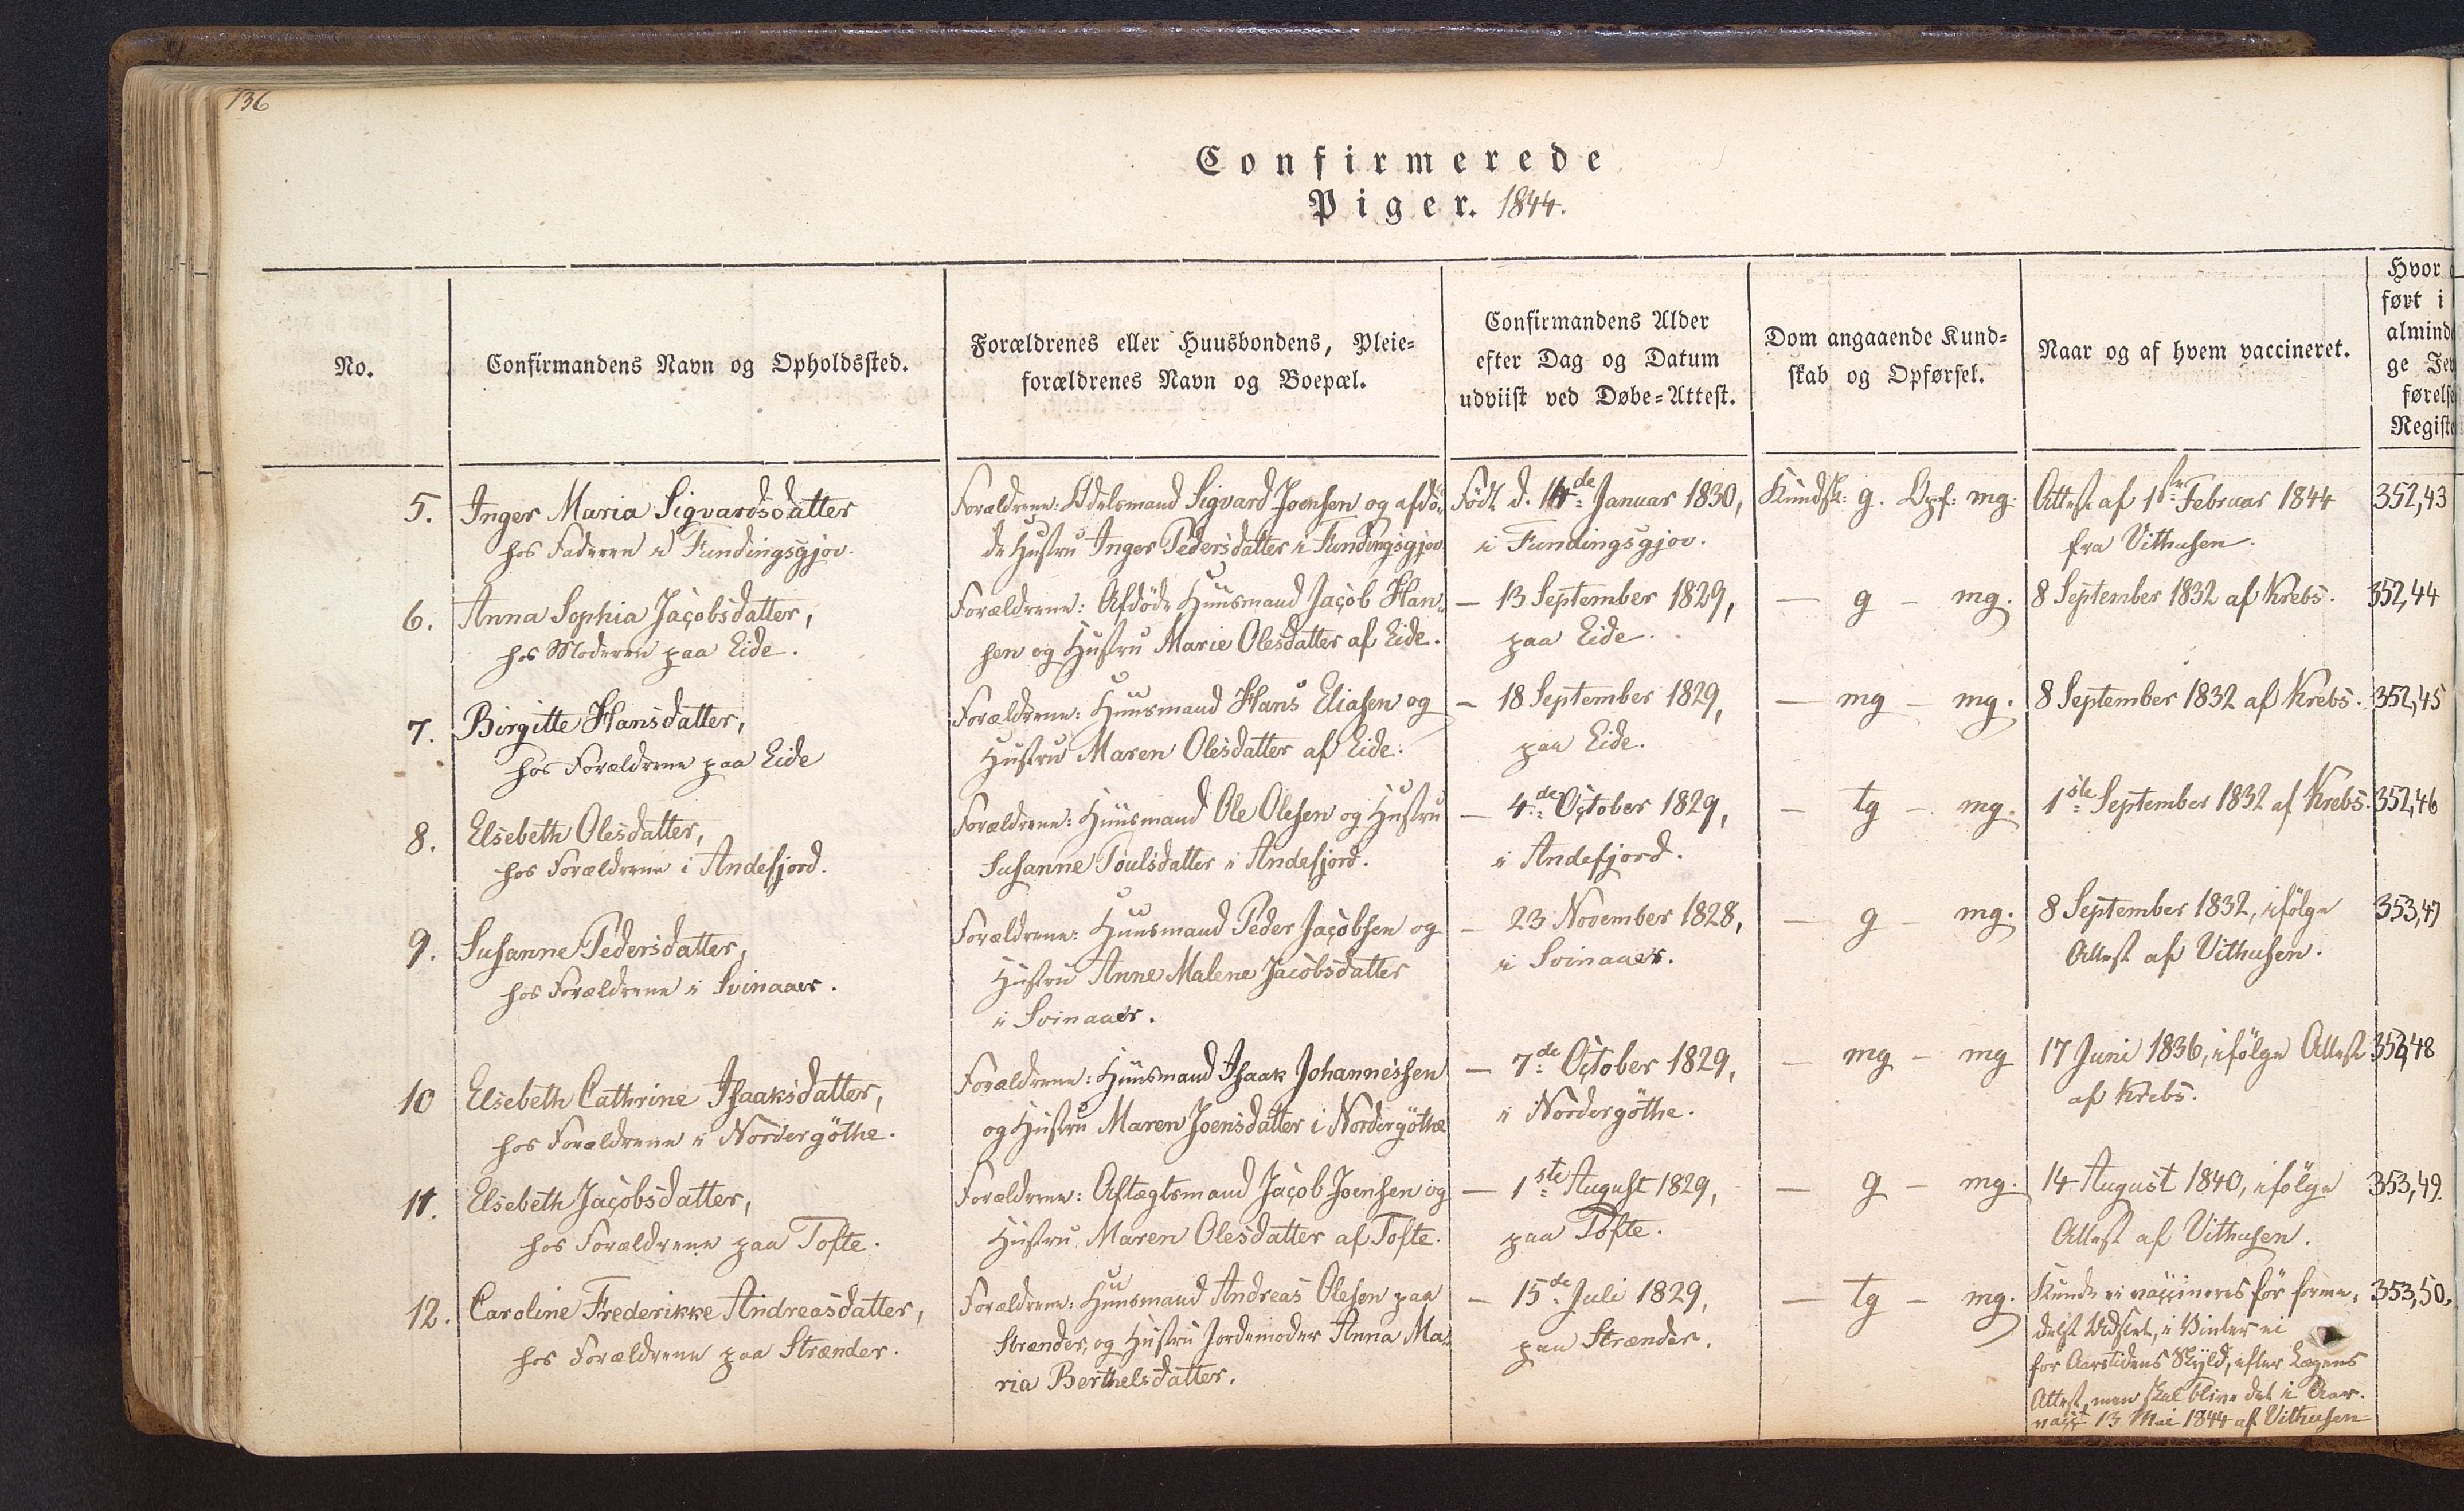 136
Confirmerede
Piger. 1844.
No.
Confirmandens Navn og Opholdssted.
Forældrenes eller Huusbondens, Pleie=
forældrenes Navn og Boepæl.
Confirmandens Alder
efter Dag og Datum
udviist ved Døbe=Attest.
Dom angaaende Kund=
skab og Opførsel.
Naar og af hvem vaccineret.
Hvor
ført i
almind
ge Jev
førelse
Registe
5. Inger Maria Sigvardsdatter
hos Faderen i Fundingsgjov.
Forældrene: Odelsmand Sigvard Joensen og afdö=
de Hustru Inger Pedersdatter i Fundingsgjov
Födt d. 14de Januar 1830,
i Fundingsgjov.
Kundsk: g. Opf: mg.
Attest af 1ste Februar 1844
fra Vithusen.
352,43
6. Anna Sophia Jacobsdatter,
hos Moderen paa Eide.
Forældrene: Afdöde Huusmand Jacob Han=
sen og Hustru Marie Olesdatter af Eide.
– 13 September 1829,
paa Eide.
– g – mg.
8 September 1832 af Krebs.
352,44
7. Birgitte Hansdatter,
hos Forældrene paa Eide
Forældrene: Huusmand Hans Eliasen og
Hustru Maren Olesdatter af Eide.
– 18 September 1829,
paa Eide.
– mg – mg.
8 September 1832 af Krebs.
352,45
8. Elsebeth Olesdatter,
hos Forældrene i Andefjord.
Forældrene: Huusmand Ole Olesen og Hustru
Susanne Poulsdatter i Andefjord.
– 4de October 1829,
i Andefjord.
– tg – mg.
1ste September 1832 af Krebs.
352,46
9. Susanne Pedersdatter,
hos Forældrene i Svinaaer.
Forældrene: Huusmand Peder Jacobsen og
Hustru Anne Malene Jacobsdatter
i Svinaaer.
– 23 November 1828,
i Svinaaer.
– g – mg.
8 September 1832, ifölge
Attest af Vithusen.
353,47
10 Elsebeth Cathrine Isaaksdatter,
hos Forældrene i Nordergöthe.
Forældrene: Huusmand Isaak Johannessen
og Hustru Maren Joensdatter i Nordergöthe
– 7de October 1829,
i Nordergöthe.
– mg – mg
17 Juni 1836, ifölge Attest
af Krebs.
353,48
11. Elsebeth Jacobsdatter,
hos Forældrene paa Tofte.
Forældrene: Aftægtsmand Jacob Joensen og
Hustru Maren Olesdatter af Tofte.
– 1ste August 1829,
paa Tofte.
– g – mg.
14 August 1840, ifölge
Attest af Vithusen.
353,49.
12. Caroline Frederikke Andreasdatter,
hos Forældrene paa Strænder.
Forældrene: Huusmand Andreas Olesen paa
Strænder, og Hustru Jordemoder Anna Ma=
ria Berthelsdatter.
– 15de Juli 1829,
paa Strænder.
– tg – mg.
Kunde ei vaccineres för forme=
delst Udslet, i Vinter ei
for Aarstidens Skyld, efter Lægens
Attest, men skal blive det i Aar.
vacc 13 Mai 1844 af Vithusen
353,50.